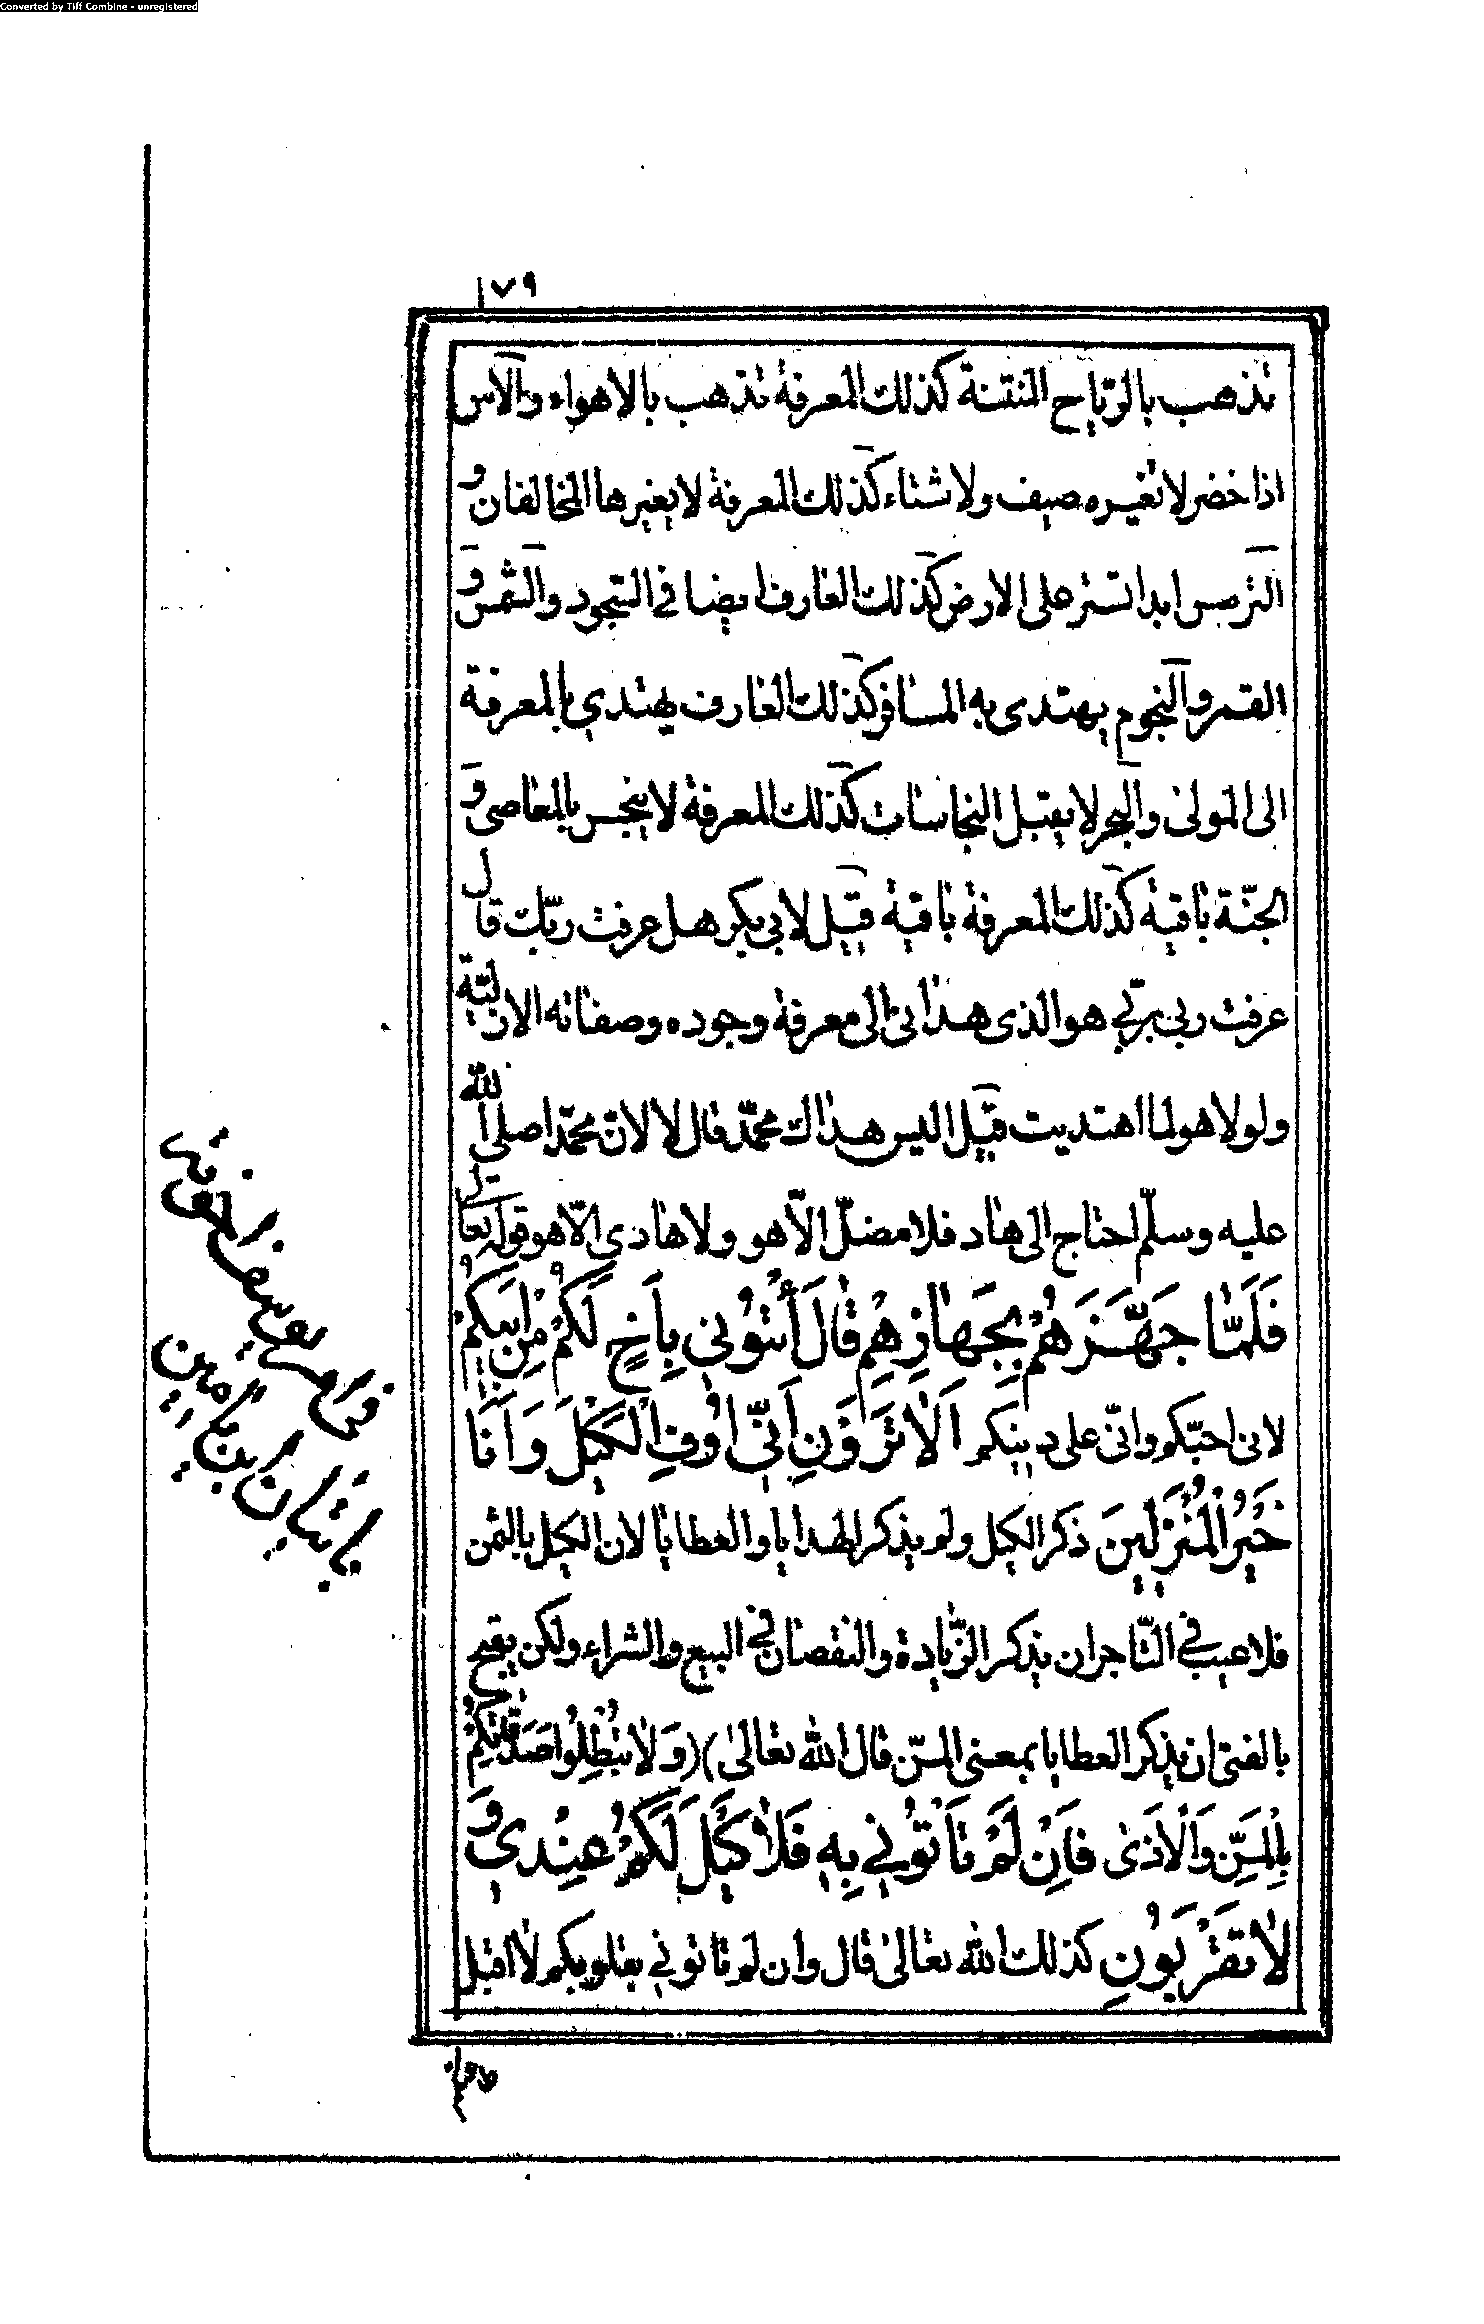 Converted by Tiff Combine - unregistered
١٧٩
تذهب بالرّياح المنتنة كذلك المعرفة تذهب بالاهواء والآس
اذا خضر لا تغيره صيف ولا شتاء كذلك المعرفة لا يغيرها المخالفان و
النرجس ابدا تستر على الارض كذلك العارف ايضا في السّجود والشّمس و
القمر والنجوم يهتدى به المسافر كذلك العارف يهتدي بالمعرفة
الى المولىٰ والبحر لا يقبل النجاسات كذلك المعرفة لا ينجس بالمعاصى و
الجنّة باقية كذلك المعرفة باقية قيل لابي بكر هل عرفت ربّك قال
عرفت ربى بربّي هو الذى هدانى الى معرفة وجوده وصفاته الازليّة
ولولا هو لما اهتديت قيل اليس هداك محمّد قال لا لانّ محمّدا صلى الله
عليه وسلّم احتاج الى هاد فلا مضلّ الّا هو ولا هادي الّا هو قوله تعالى
فَلَمَّا جَهَّزَهُمْ بِجَهَازِهِمْ قَالَ أْتُونِي بِأَخٍ لَكُمْ مِنْ أَبِيكُمْ
لانى احبّكم وانّى على دينكم اَلَا تَرَوْنَ اَنِّي اُوفِ الْكَيْلَ وَاَنَا
خَيْرُ الْمُنْزِلِينَ ذكر الكيل ولم يذكر الهدايا والعطايا لان الكيل بالثمن
فلا عيب في التّاجر ان يذكر الزّيادة والنقصان في البيع والشراء ولكن يقبح
بالفتى ان يذكر العطايا بمعنى المنّ قال الله تعالىٰ (وَلَا تُبْطِلُوا صَدَقَاتِكُمْ
بِالْمَنِّ وَالْأَذَىٰ فَاِنْ لَمْ تَأْتُونِي بِهِ فَلَا كَيْلَ لَكُمْ عِنْدِي وَ
لَا تَقْرَبُونِ كذلك الله تعالىٰ قال وان لم تاتوني بقلوبكم لا اقبل